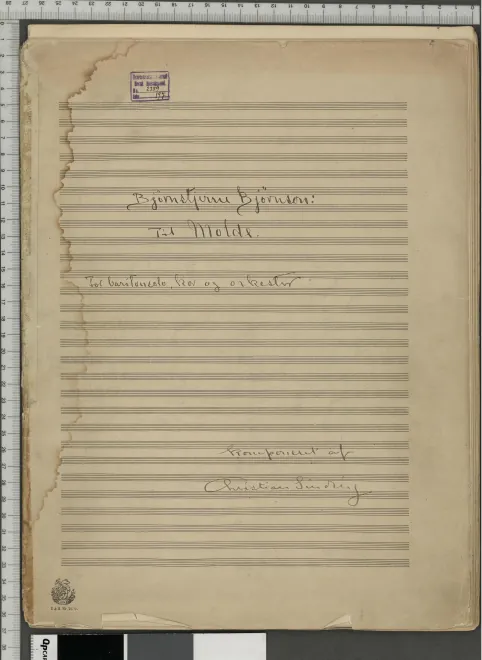 Björnstjerne Björnson:
Til Molde.
For baritonsolo, kor og orkester
komponert af
Christian Sinding